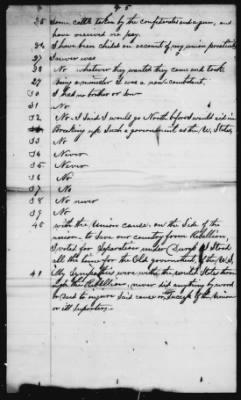 25 Some cattle taken by the confederates and gun, and
have received no pay.
26 I have been chided on account of my union proclivities
27 I never was
28 No whatever they wanted they came and took
29 being a minister I was a non combatant.
30 I had no brother or son
31 No
32 No. I said I would go North before I would aid in
Breaking up such a government as the U. States,
33 No
34 Never
35 Never
36 No
37 No
38 No never
39 No
40 with the Union cause. on the side of the
union to save our country from Rebellion,
I voted for Seperation under I stood
all the time for the Old government, of the U. S.
41 My Sympathies were with the united States through
the Rebellion, never did anything by word
or deed to injure said cause or the Union
or its Supporters.